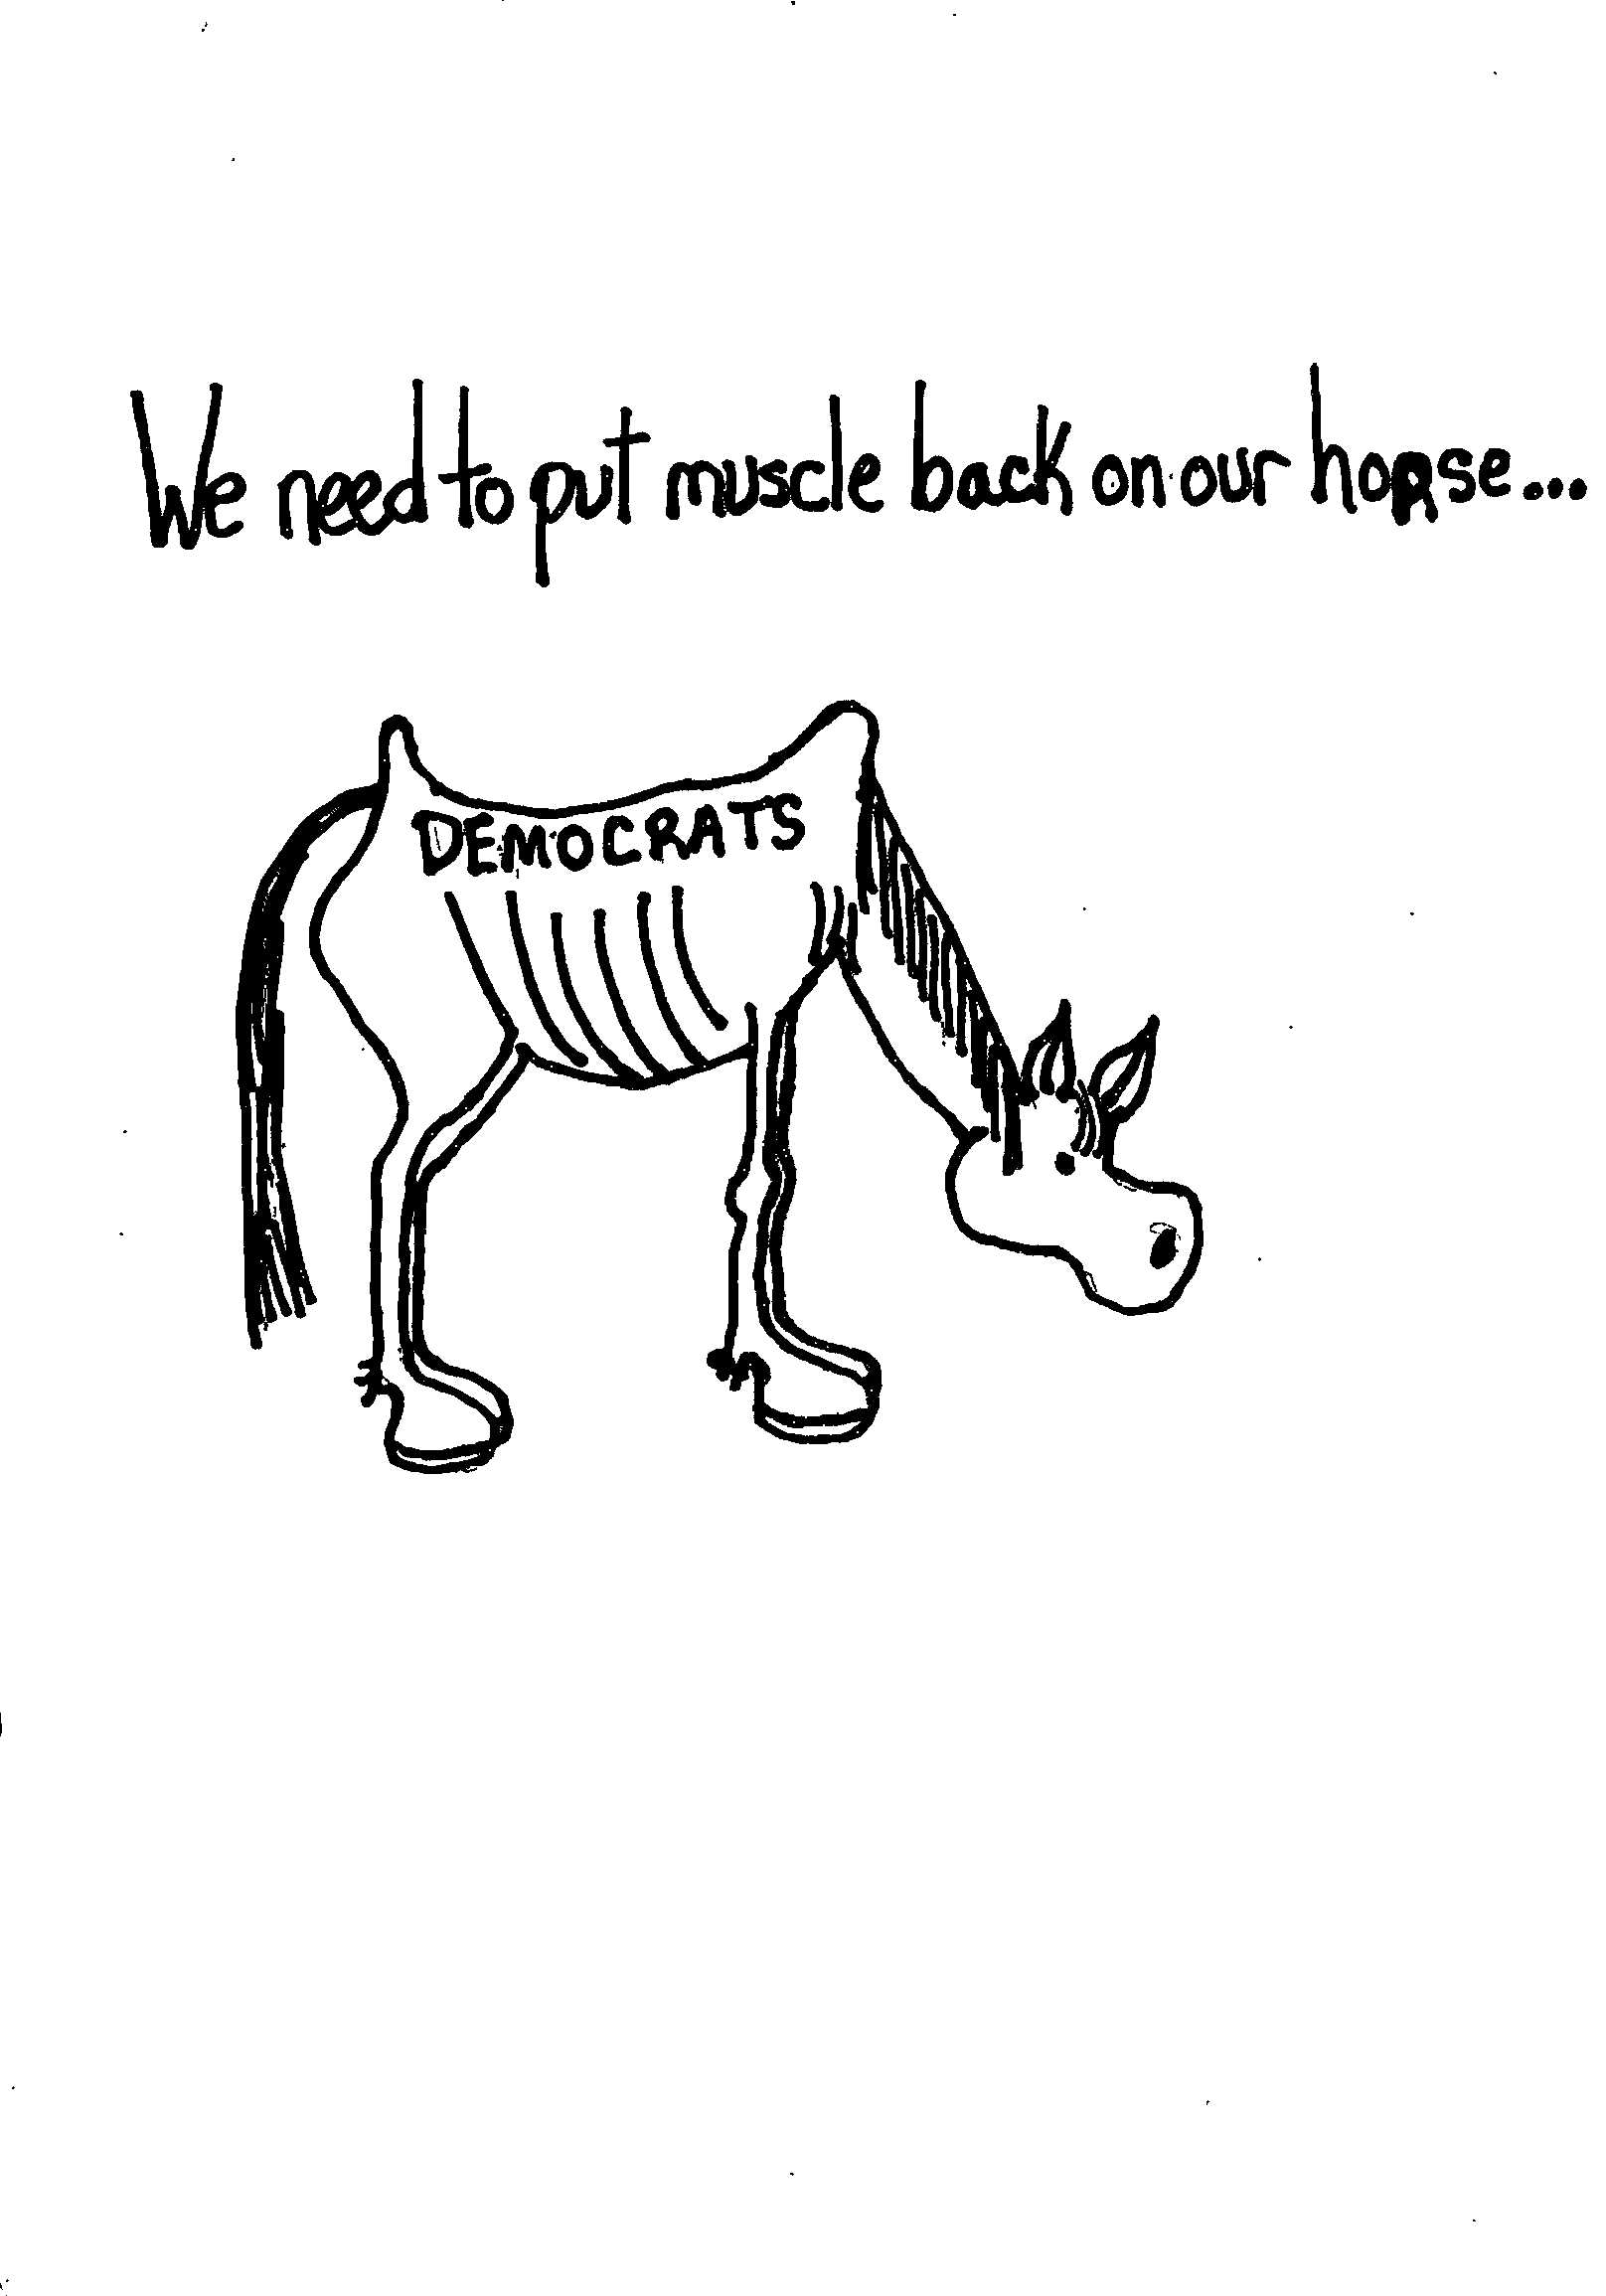 We need to put muscle back on our horse...
DEMOCRATS